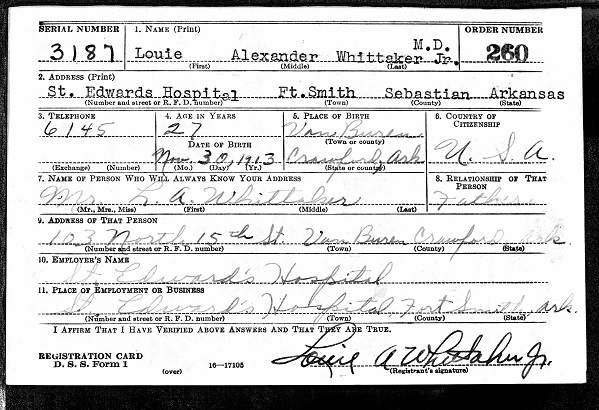 SERIAL NUMBER 1. NAME (Print) ORDER NUMBER
3187 Louie Alexander Whittaker Jr. M.D. 260
(First) (Middle) (Last)
2. ADDRESS (Print)
St. Edwards Hospital Ft.Smith Sebastian Arkansas
(Number and street or R. F. D. number) (Town) (County) (State)
3. TELEPHONE 4. AGE IN YEARS 5. PLACE OF BIRTH 6. COUNTRY OF CITIZENSHIP
6145 27 Van Buren
(Town or county)
DATE OF BIRTH
Nov. 30, 1913 Crawford, Ark U. S. A.
(Exchange) (Number) (Mo.) (Day) (Yr.) (State or country)
7. NAME OF PERSON WHO WILL ALWAYS KNOW YOUR ADDRESS 8. RELATIONSHIP OF THAT PERSON
Mr. L. A. Whittaker Father
(Mr., Mrs., Miss) (First) (Middle) (Last)
9. ADDRESS OF THAT PERSON
123 North 15th St. Van Buren Crawford Ark.
(Number and street or R. F. D. number) (Town) (County) (State)
10. EMPLOYER'S NAME
St. Edward's Hospital
11. PLACE OF EMPLOYMENT OR BUSINESS
St. Edward's Hospital Fort Smith, Ark.
(Number and street or R. F. D. number) (Town) (County) (State)
I AFFIRM THAT I HAVE VERIFIED ABOVE ANSWERS AND THAT THEY ARE TRUE.
REGISTRATION CARD
D. S. S. Form 1 (over) 16—17105
Louie A Whittaker Jr.
(Registrant's signature)